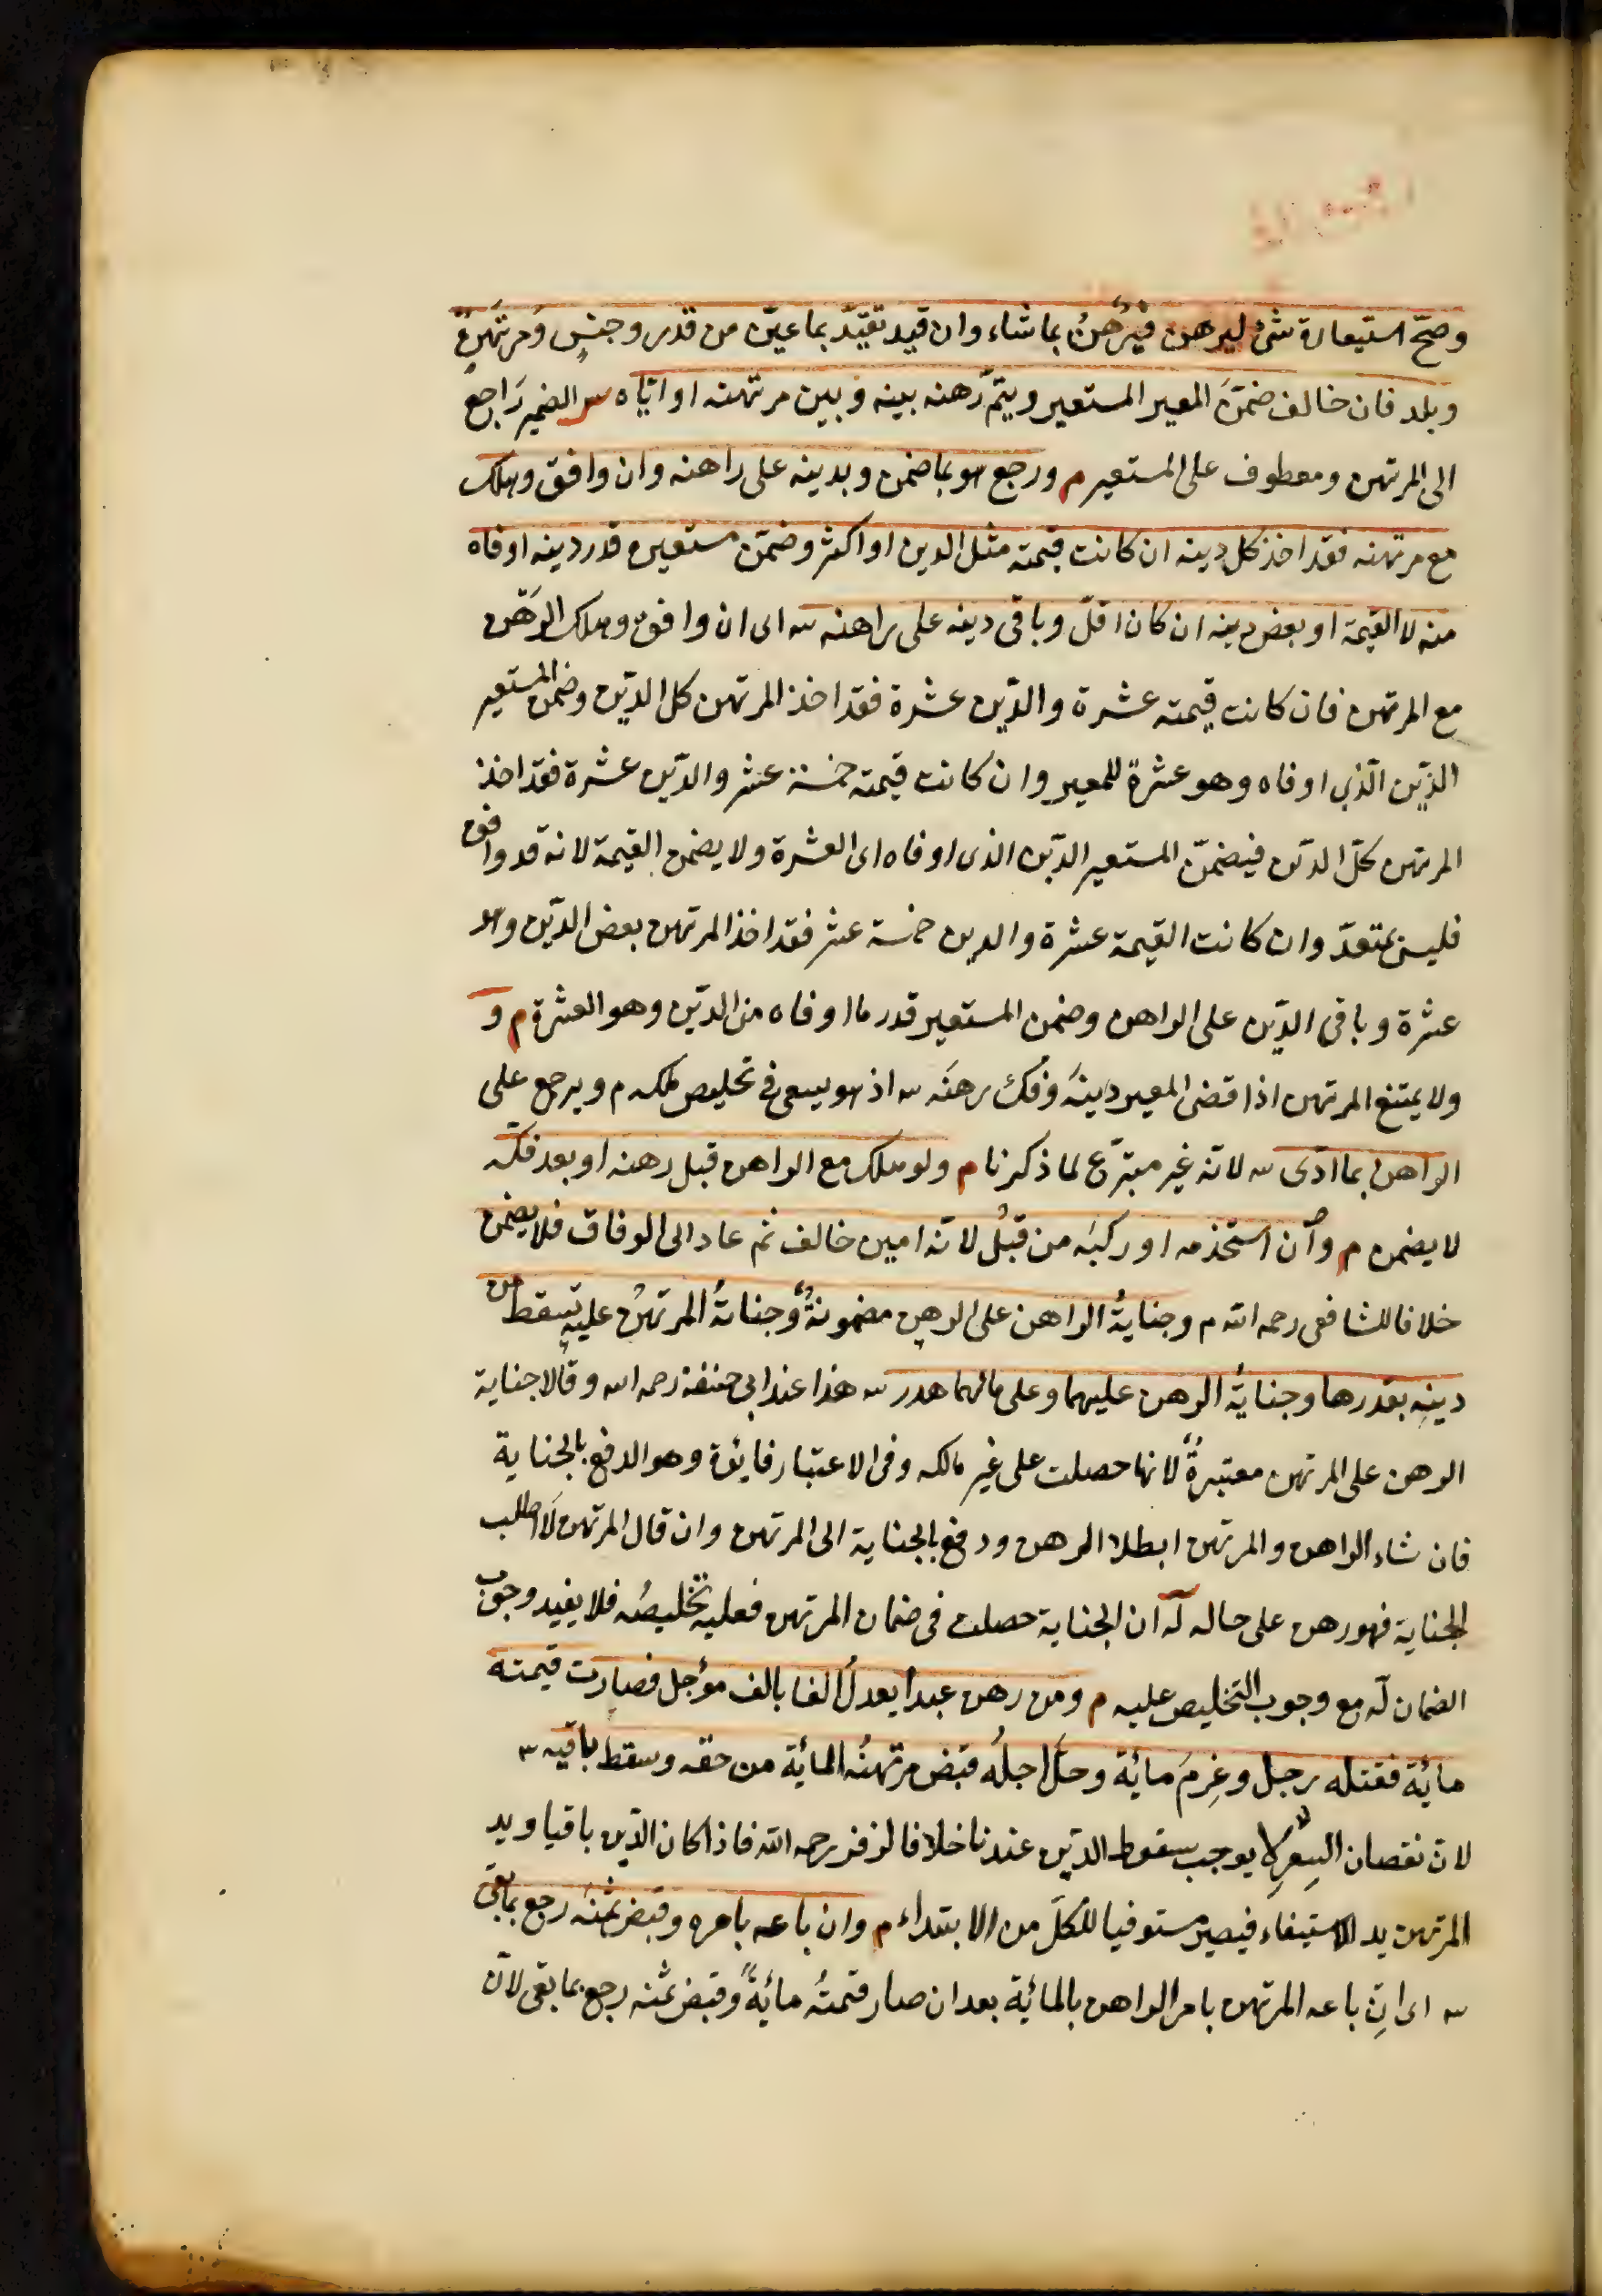 وصحّ استيعارة شئ ليرهن فيرهنُ بما شاء وان قيد تقيّد بما عيّن من قدر وجنسٍ ومرتهنٍ
وبلد فان خالف ضمّن المعير المستعير ويتمّ رهنه بينه وبين مرتهنه او اياه س الضمير راجع
الى المرتهن ومعطوف على المستعير م ورجع هو بما ضمن وبدينه على راهنه وان وافق وهلك
مع مرتهنه فقد اخذ كل دينه ان كانت قيمته مثل الدين او اكثر وضمّن مستعيره قدر دينه اوفاه
منه لا القيمة او بعض دينه ان كان اقلّ وباقى دينه على راهنه س اى ان وافق وهلك الرهن
مع المرتهن فان كانت قيمته عشرة والدّين عشرة فقد اخذ المرتهن كل الدّين وضمن المستعير
الدّين الّذى اوفاه وهو عشرة للمعير وان كانت قيمته خمسة عشر والدّين عشرة فقد اخذ
المرتهن كلّ الدّين فيضمّن المستعير الدّين الذى اوفاه اى العشرة ولا يضمن القيمة لانه قد وافق
فليس بمتعدّ وان كانت القيمة عشرة والدين خمسة عشر فقد اخذ المرتهن بعض الدّين وهو
عشرة وباقى الدّين على الراهن وضمن المستعير قدر ما اوفاه من الدّين وهو العشرة م و
ولا يمتنع المرتهن اذا قضى المعير دينه وفك رهنه س اذ هو يسعى فى تخليص ملكه م ويرجع على
الراهن بما ادّى س لانّه غير متبرّع لما ذكرنا م ولو هلك مع الراهن قبل رهنه او بعد فكّه
لا يضمن م وان استخدمه او ركبه من قبلُ لانّه امين خالف ثم عاد الى الوفاق فلا يضمن
خلافا للشافعى رحمه الله م وجنايةُ الراهن على الرهن مضمونةٌ وجنايةُ المرتهن عليه تسقط من
دينه بقدرها وجنايةُ الرهن عليهما وعلى مالهما هدر س هذا عند ابى حنيفة رحمه الله وقالا جناية
الرهن على المرتهن معتبرةٌ لانها حصلت على غير مالكه وفى الاعتبار فايدة وهو الدفع بالجناية
فان شاء الراهن والمرتهن ابطلا الرهن ودفع بالجناية الى المرتهن وان قال المرتهن لا اطلب
الجناية فهو رهن على حاله له ان الجناية حصلت فى ضمان المرتهن فعليه تخليصُه فلا يفيد وجوب
الضمان له مع وجوب التخليص عليه م ومن رهن عبدا يعدلُ الفا بالف مؤجل فصارت قيمته
مائة فقتله رجل وغرِمَ مائة وحلّ اجلُه قبض مرتهنُه المائة من حقه وسقط باقيه س
لانّ نقصان السِعرِ لا يوجب سقوط الدّين عندنا خلافا لزفر رحمه الله فاذا كان الدّين باقيا ويد
المرتهن يد الاستيفاء فيصير مستوفيا للكلّ من الابتداء م وان باعه بامره وقبض ثمنَه رجع بما بقى
س اى ان باعه المرتهن بامر الراهن بالمائة بعد ان صار قيمتُه مائةً وقبض ثمنه رجع بما بقى لانّ